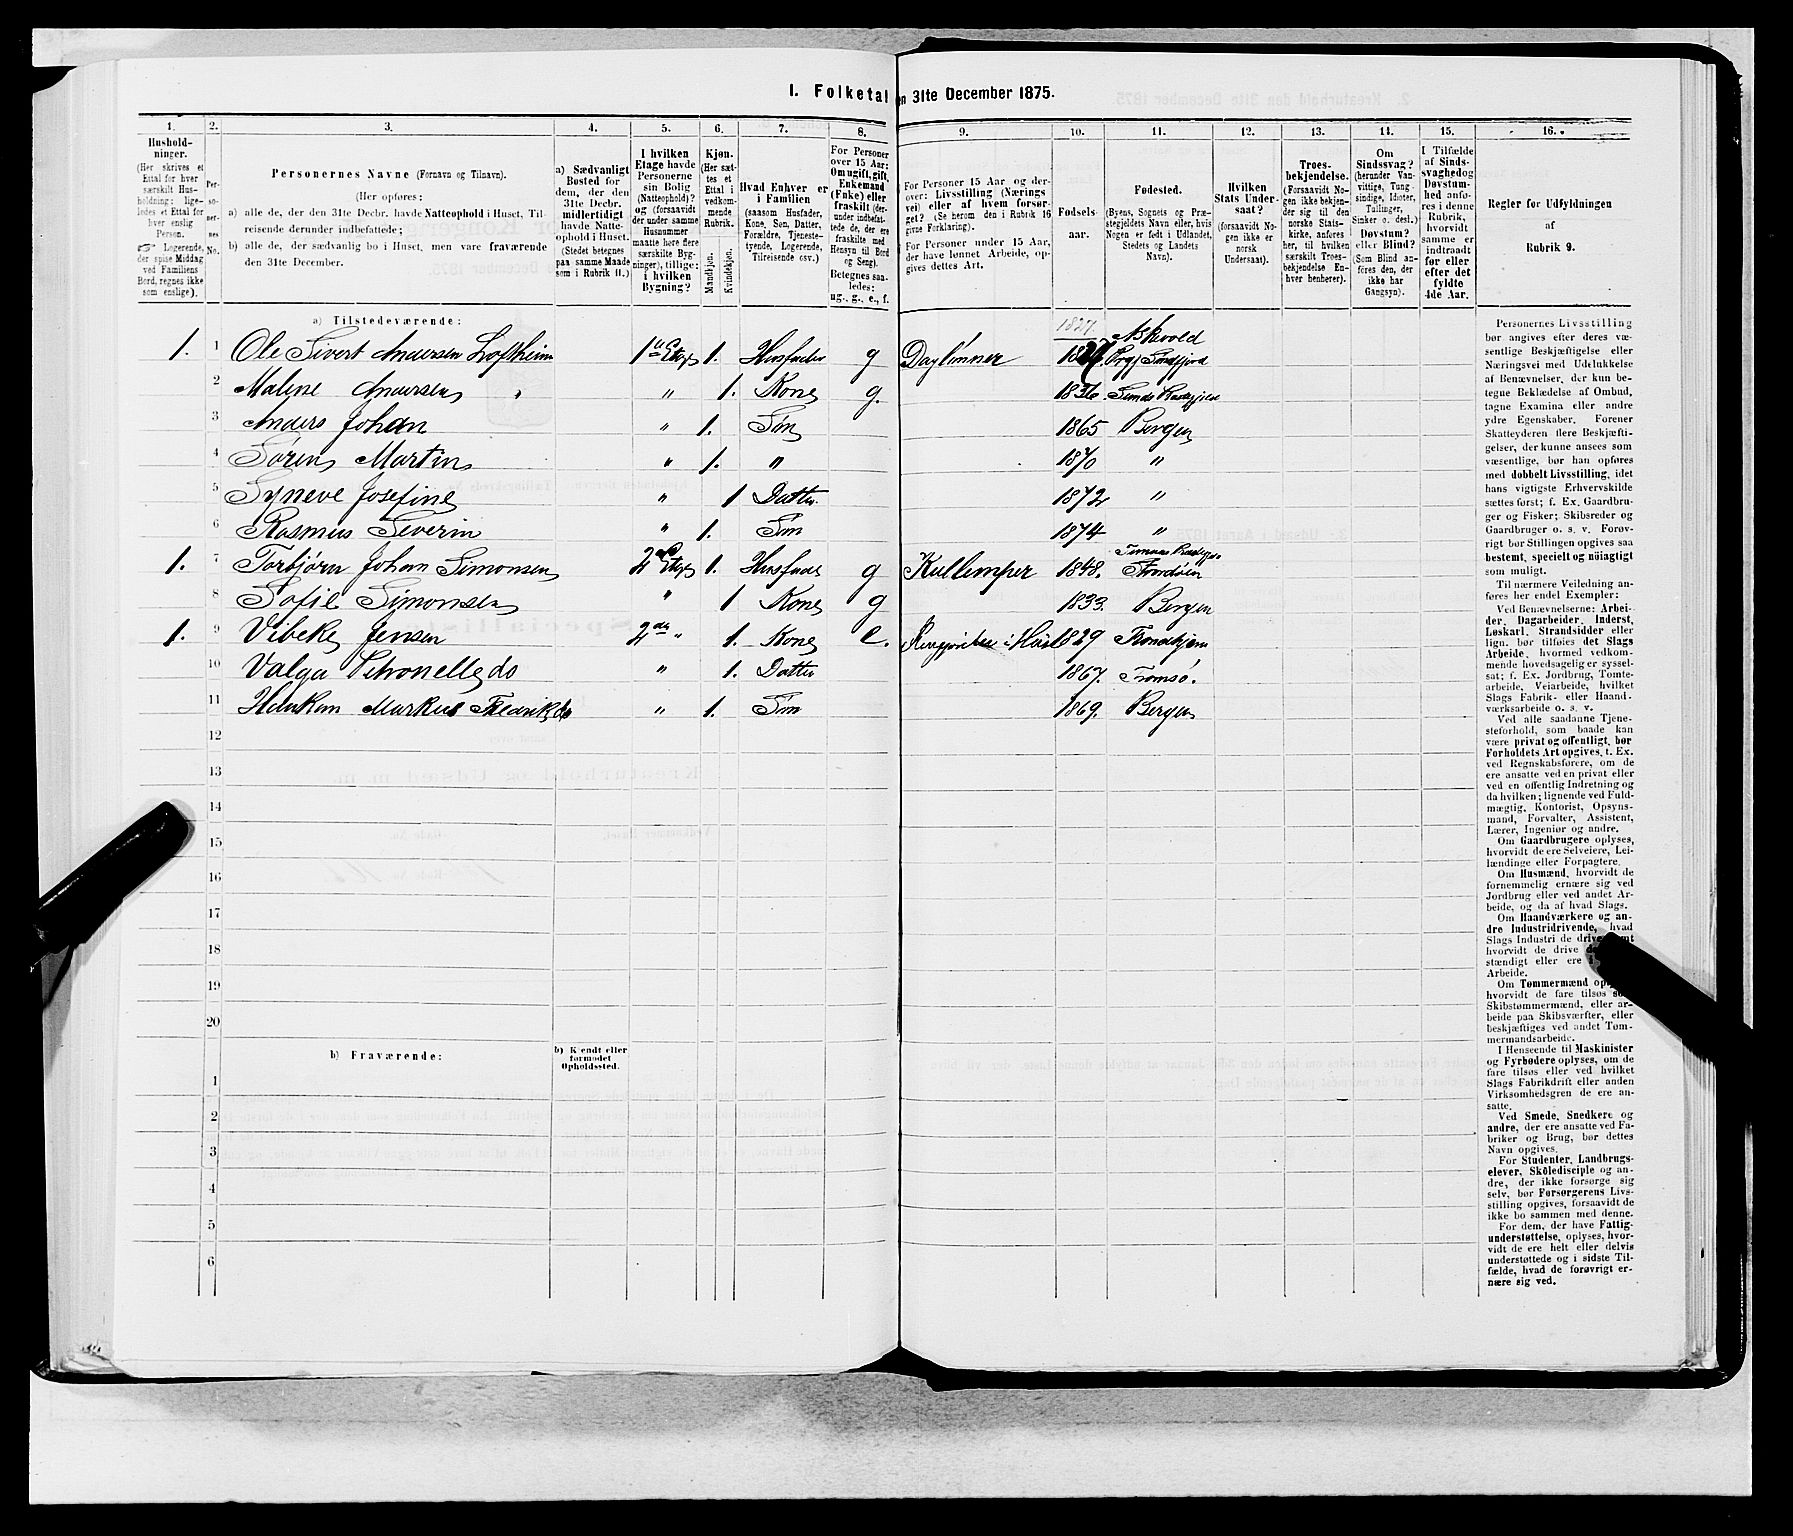 I. Folketal den 31te December 1875.
1.
2.
3.
4.
5.
6.
7.
8.
9.
10.
11.
12.
13.
14.
15.
16.
Hushold-
ninger.
(Her skrives et
Ettal for hver
særskilt Hus-
holdning; lige-
ledes et Ettal for
hver enslig
Person.
☞ Logerende,
der spise Middag
ved Familiens
Bord, regnes ikke
som enslige).
Per-
so-
ner-
nes
No.
Personernes Navne (Fornavn og Tilnavn).
(Her opføres:
a) alle de, der den 31te Decbr. havde Natteophold i Huset, Til-
reisende derunder indbefattede;
b) alle de, der sædvanlig bo i Huset, men vare fraværende
den 31te December.
a) Sædvanligt
Bosted for
dem, der den
31te Decbr.
midlertidigt
havde Natte-
ophold i Huset.
(Stedet betegnes
paa samme Maade
som i Rubrik 11.)
I hvilken
Etage havde
Personerne
sin Bolig
(Natteophold)?
og (forsaavidt
der under samme
Husnummer
maatte høre flere
særskilte Byg-
ninger), tillige:
i hvilken
Bygning?
Kjøn.
(Her sæt-
tes et
Ettal i
vedkom-
mende
Rubrik.
Mandkjøn.
Kvindekjøn.
Hvad Enhver er
i Familien
(saasom Husfader,
Kone, Søn, Datter,
Forældre, Tjeneste-
tyende, Logerende,
Tilreisende osv.)
For Personer
over 15 Aar:
Om ugift, gift,
Enkemand
(Enke) eller
fraskilt (der-
under indbefat-
tede de, der ere
fraskilte med
Hensyn til Bord
og Seng).
Betegnes saa-
ledes:
ug., g., e., f.
For Personer 15 Aar og der-
over: Livsstilling (Nærings
vei) eller af hvem forsør-
get? (Se herom den i Rubrik 16
givne Forklaring).
For Personer under 15 Aar,
der have lønnet Arbeide, op-
gives dettes Art.
Fødsels-
aar.
Fødested.
(Byens, Sognets og Præ-
stegjeldets Navn eller, hvis
Nogen er født i Udlandet,
Stedets og Landets
Navn).
Hvilken
Stats Under-
saat?
(forsaavidt No-
gen ikke er
norsk
Undersaat).
Troes-
bekjendelse.
(Forsaavidt No-
gen ikke bekjen-
der sig til den
norske Stats-
kirke, anføres
her, til hvilken
særskilt Troes-
bekjendelse En-
hver henhører).
Om
Sindssvag?
(herunder Van-
vittige, Tung-
sindige, Idioter,
Tullinger,
Sinker o. desl.)
Døvstum?
eller Blind?
(Som Blind an-
føres den, der
ikke har
Gangsyn).
I Tilfælde
af Sinds-
svaghed og
Døvstum-
hed anfø-
res i denne
Rubrik,
hvorvidt
samme er
indtraadt
før eller
efter det
fyldte
4de Aar.
Regler for Udfyldningen
af
Rubrik 9.
a) Tilstedeværende:
1827. Askvold
1. 1 Ole Sivert Andersen Loftheim 1ste Etage 1. Husfader g Daglønner Søndfjord
2 Malene Andersen " " 1. Kone g. 1836.
3 Anders Johan " 1. Søn 1865 Bergen
4 Søren Martin " 1. " 1870 "
5 Syneve Josefine " 1 Datter 1872 "
6 Rasmus Severin " 1. Søn 1874 "
1. 7 Torbjørn Johan Simonsen 2 Etage 1. Husfader g Kullemper 1848.
8 Sofie Simonsen " 1 Kone g 1833. Bergen
1. 9 Vibeke Jensen 2den " 1. Kone e. 1829 Trondhjem
10 Valga Petronelle do " 1. Datter 1867. Tromsø.
11 Markus Fredrik do " 1. Søn 1869. Bergen
12
13
14
15
16
17
18
19
20
b) Fraværende:
b) Kjendt eller
formodet
Opholdssted.
1
2
3
4
5
6
Personernes Livsstilling
bør angives efter deres væ-
sentlige Beskjæftigelse eller
Næringsvei med Udelukkelse
af Benævnelser, der kun be-
tegne Beklædelse af Ombud,
tagne Examina eller andre
ydre Egenskaber. Forener
Skatteyderen flere Beskjæfti-
gelser, der kunne ansees som
væsentlige, bør han opføres
med dobbelt Livsstilling, idet
hans vigtigste Erhvervskilde
sættes først; f. Ex. Gaardbru-
ger og Fisker; Skibsreder og
Gaardbruger o. s. v. Forøv-
rigt bør Stillingen opgives saa
bestemt, specielt og nøiagtigt
som muligt.
Til nærmere Veiledning an-
føres her endel Exempler:
Ved Benævnelserne: Arbei-
der, Dagarbeider, Inderst,
Løskarl, Strandsidder eller
lign. bør tilføies det Slags
Arbeide, hvormed vedkom-
mende hovedsagelig er syssel-
sat; f. Ex. Jordbrug, Tomte-
arbeide, Veiarbeide, hvilket
Slags Fabrik- eller Haand-
værksarbeide o. s. v.
Ved alle saadanne Tjene-
steforhold, som baade kan
være privat og offentligt, bør
Forholdets Art opgives, t. Ex.
ved Regnskabsførere, om de
ere ansatte ved en privat eller
ved en offentlig Indretning og
da hvilken; lignende ved Fuld-
mægtig, Kontorist, Opsyns-
mand, Forvalter, Assistent,
Lærer, Ingeniør og andre.
Om Gaardbrugere oplyses,
hvorvidt de ere Selveiere, Lei-
lændinge eller Forpagtere.
Om Husmænd, hvorvidt de
fornemmelig ernære sig ved
Jordbrug eller ved andet Ar-
beide, og da af hvad Slags.
Om Haandværkere og an-
dre Industridrivende, hvad
Slags Industri de drive
hvorvidt de drive
stændigt eller ere
Arbeide.
Om Tømmermænd
hvorvidt de fare tilsøs som
Skibstømmermænd, eller ar-
beide paa Skibsværfter, eller
beskjæftiges ved andet Tøm-
mermandsarbeide.
I Henseende til Maskinister
og Fyrbødere oplyses, om de
fare tilsøs eller ved hvilket
Slags Fabrikdrift eller anden
Virksomhedsgren de ere an-
satte.
Ved Smede, Snedkere og
andre, der ere ansatte ved Fa-
briker og Brug, bør dettes
Navn opgives.
For Studenter, Landbrugs-
elever, Skoledisciple og an-
dre, der ikke forsørge sig
selv, bør Forsørgerens Livs-
stilling opgives, forsaavidt de
ikke bo sammen med denne.
For dem, der have Fattig-
understøttelse, oplyses, hvor-
vidt de ere helt eller delvis
understøttede og i sidste Til-
fælde, hvad de forøvrigt er-
nære sig ved.